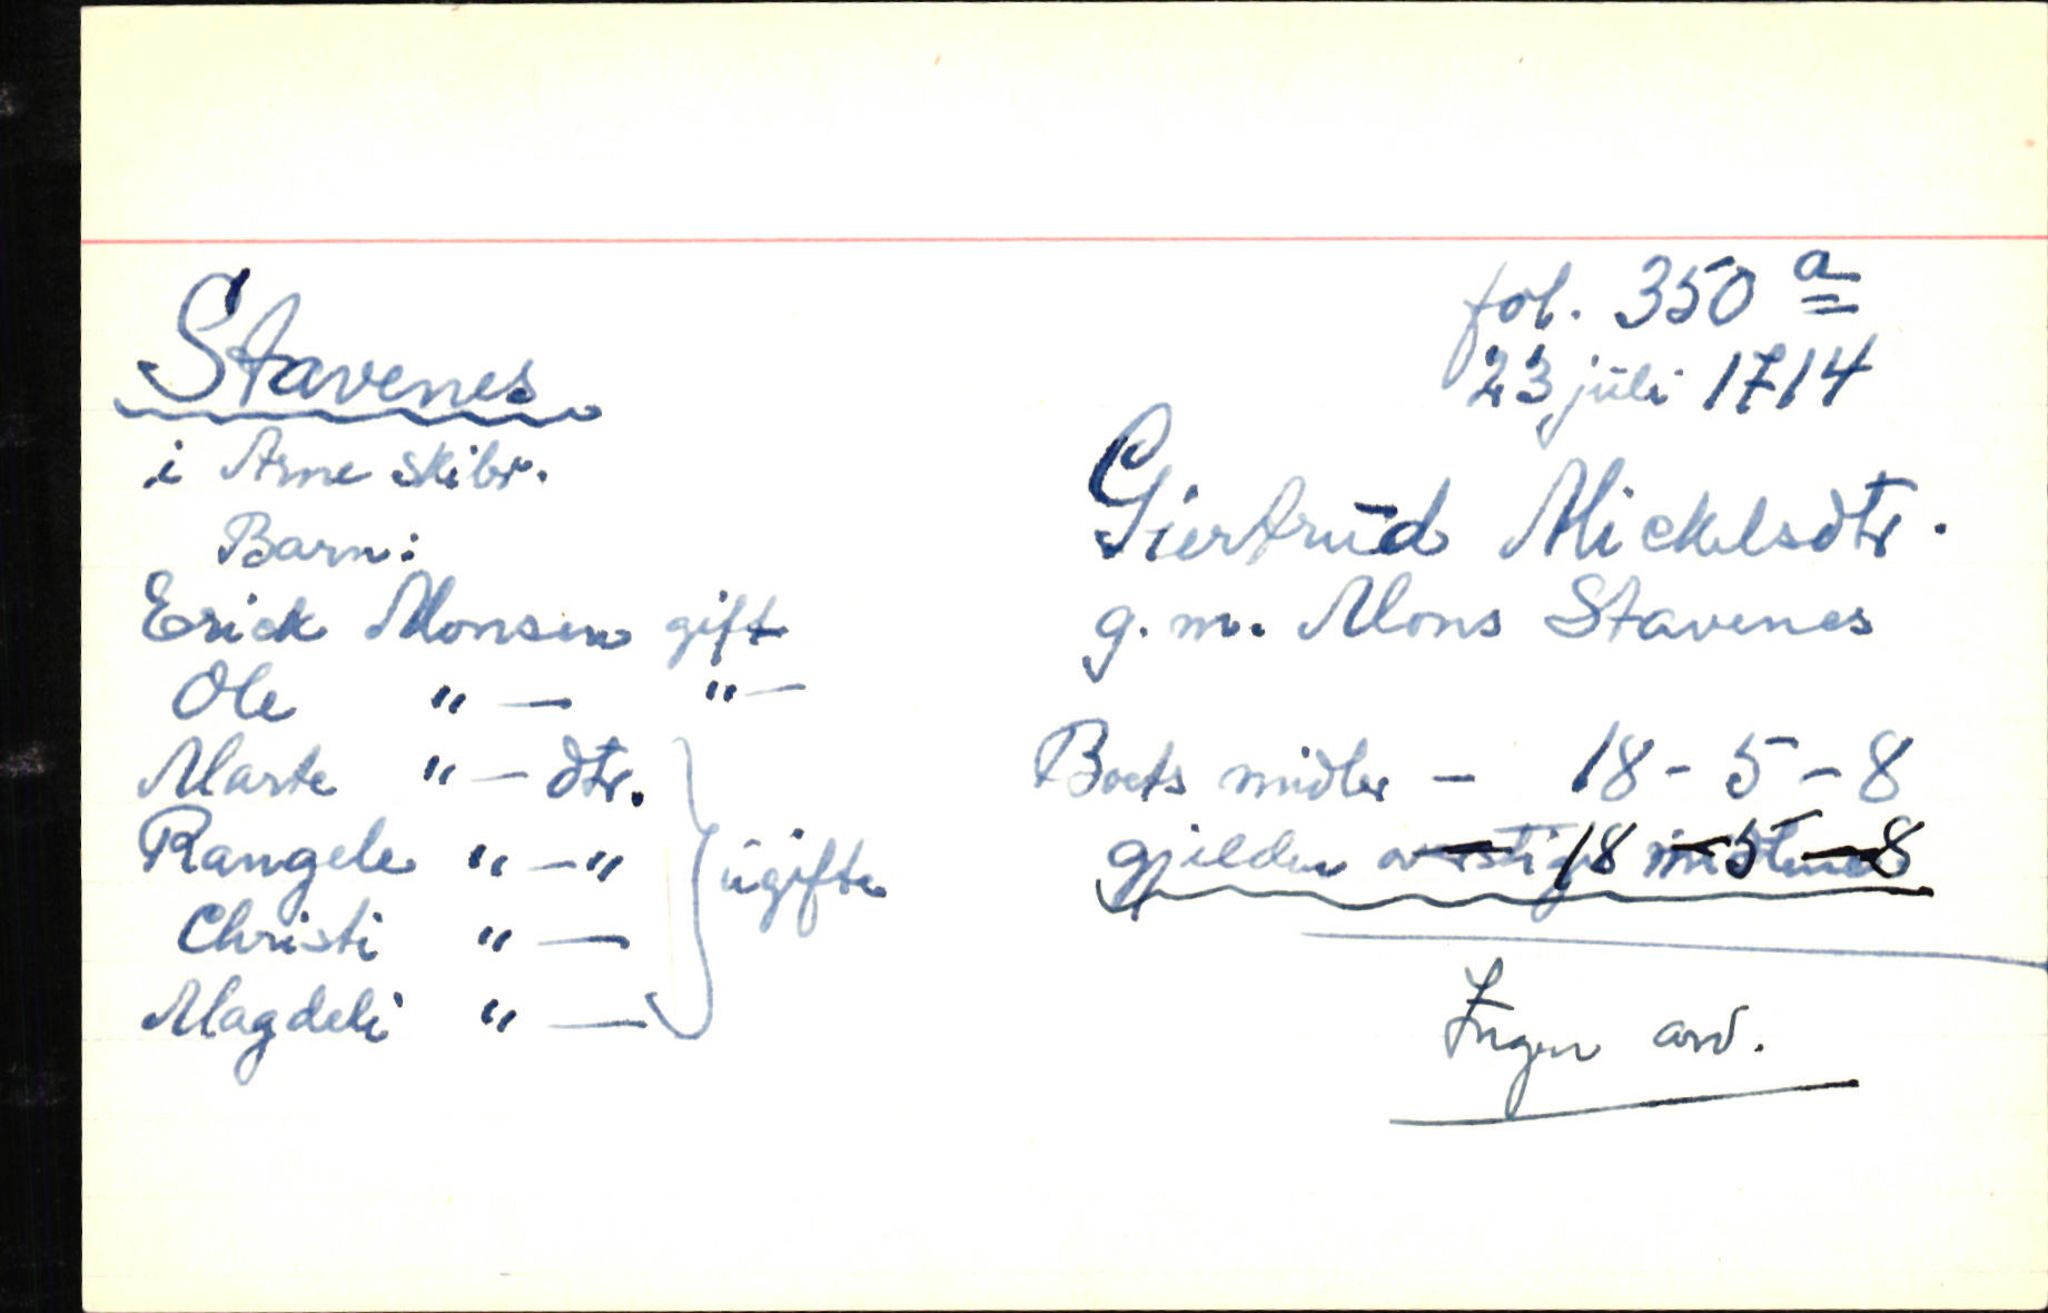 Stavenes
i Arne skibr.
Barn:
Erick Monsen gift
Ole " — " —
Marte " — dtr.
Rangele " — "
Christi " —
Magdeli " —
ugifte
fol. 350 a
23 juli 1714
Giertrud Mickelsdtr.
g. m. Mons Stavenes
Boets midler — 18 - 5 - 8
gjelden — 18 — 5 — 8
Ingen arv.